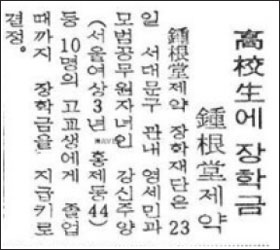 高校生에 장학금
鍾根堂제약
鍾根堂제약 장학재단은 23
일 서대문구 관내 영세민과
모범공무원자녀인 강신주양
(서울여상3년·홍제동44)
등 10명의 고교생에게 졸업
때까지 장학금을 지급키로
결정。